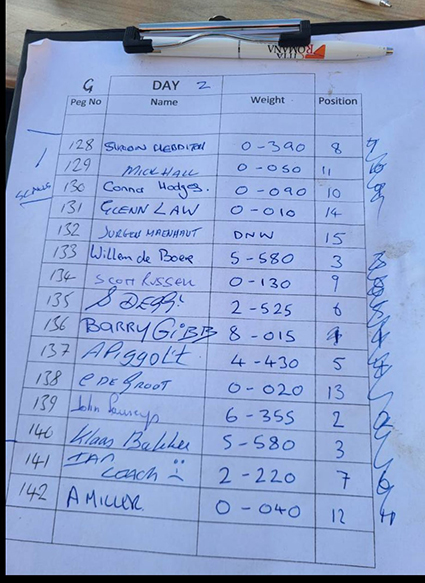 VILLA ROMANA
G DAY 2
Peg No Name Weight Position
128 0-390 8
129 MICK HALL 0-050 11
130 Connor Hodges. 0-090 10
131 GLENN LAW 0-010 14
132 JURGEN MAENHAUT DNW 15
133 Willem de Boer 5-580 3
134 SCOTT RUSSELL 0-130 9
135 2-525 6
136 BARRY GIBB 8-015 1
137 A Piggott 4-430 5
138 C DE GROOT 0-020 13
139 John 6-355 2
140 Klaas Bakker 5-580 3
141 IAN COACH 2-220 7
142 A MILLER. 0-040 12